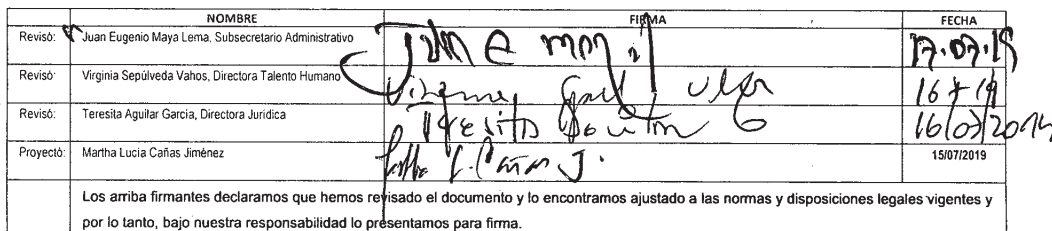 NOMBRE FIRMA FECHA
Revisó: Juan Eugenio Maya Lema, Subsecretario Administrativo 17.07.19
Revisó: Virginia Sepúlveda Vahos, Directora Talento Humano
Revisó: Teresita Aguilar García, Directora Jurídica
Proyectó: Martha Lucía Cañas Jiménez 15/07/2019
Los arriba firmantes declaramos que hemos revisado el documento y lo encontramos ajustado a las normas y disposiciones legales vigentes y
por lo tanto, bajo nuestra responsabilidad lo presentamos para firma.